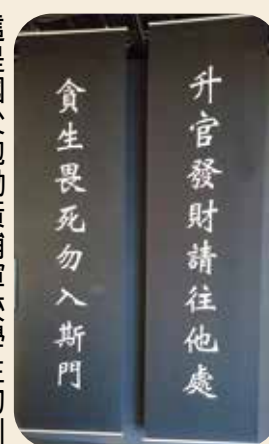 升官發財請往他處
貪生畏死勿入斯門